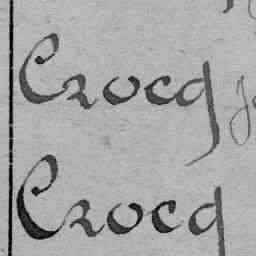 Crocq
Crocq